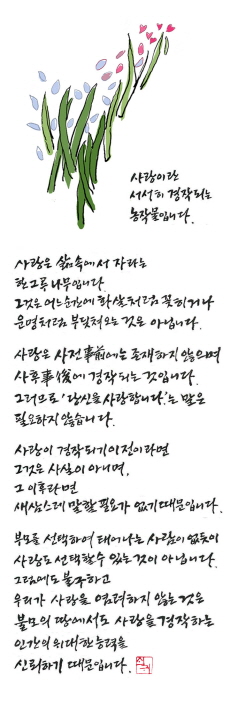 사랑이란
서서히 경작되는
농작물입니다.
사랑은 삶속에서 자라는
한그루나무입니다.
그것은 어느순간에 화살처럼 꽂히거나
운명처럼 부딪쳐오는 것은 아닙니다.
사랑은 사전事前에는 존재하지 않으며
사후事後에 경작되는 것입니다.
그러므로 '당신을 사랑합니다.'는 말은
필요하지 않습니다.
사랑이 경작되기 이전이라면
그것은 사실이 아니며,
그 이후라면
새삼스레 말할 필요가 없기 때문입니다.
부모를 선택하여 태어나는 사람이 없듯이
사랑도 선택할수 있는것이 아닙니다.
그럼에도 불구하고
우리가 사랑을 염려하지 않는 것은
불모의 땅에서도 사랑을 경작하는
인간의 위대한 능력을
신뢰하기 때문입니다.